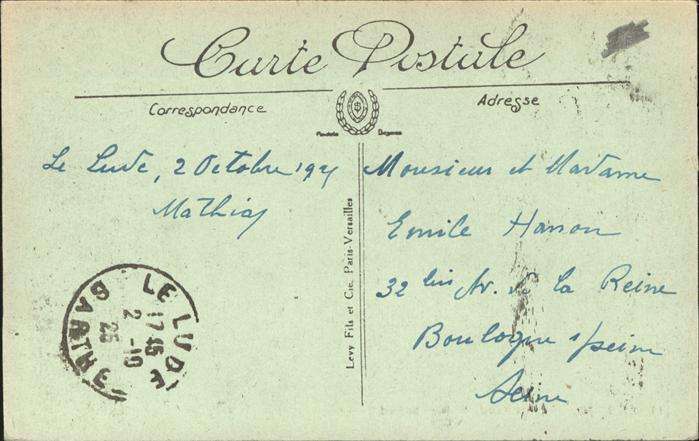 Carte Postale
Correspondance
Adresse
Le Lude, 2 Octobre
Mathias
Levy Fils et Cie, Paris-Versailles
Monsieur et Madame
Emile Hanson
32 bis Av. de la Reine
Boulogne s/ seine
Seine
LE LUDE
17 45
2 - 10
25
SARTHE